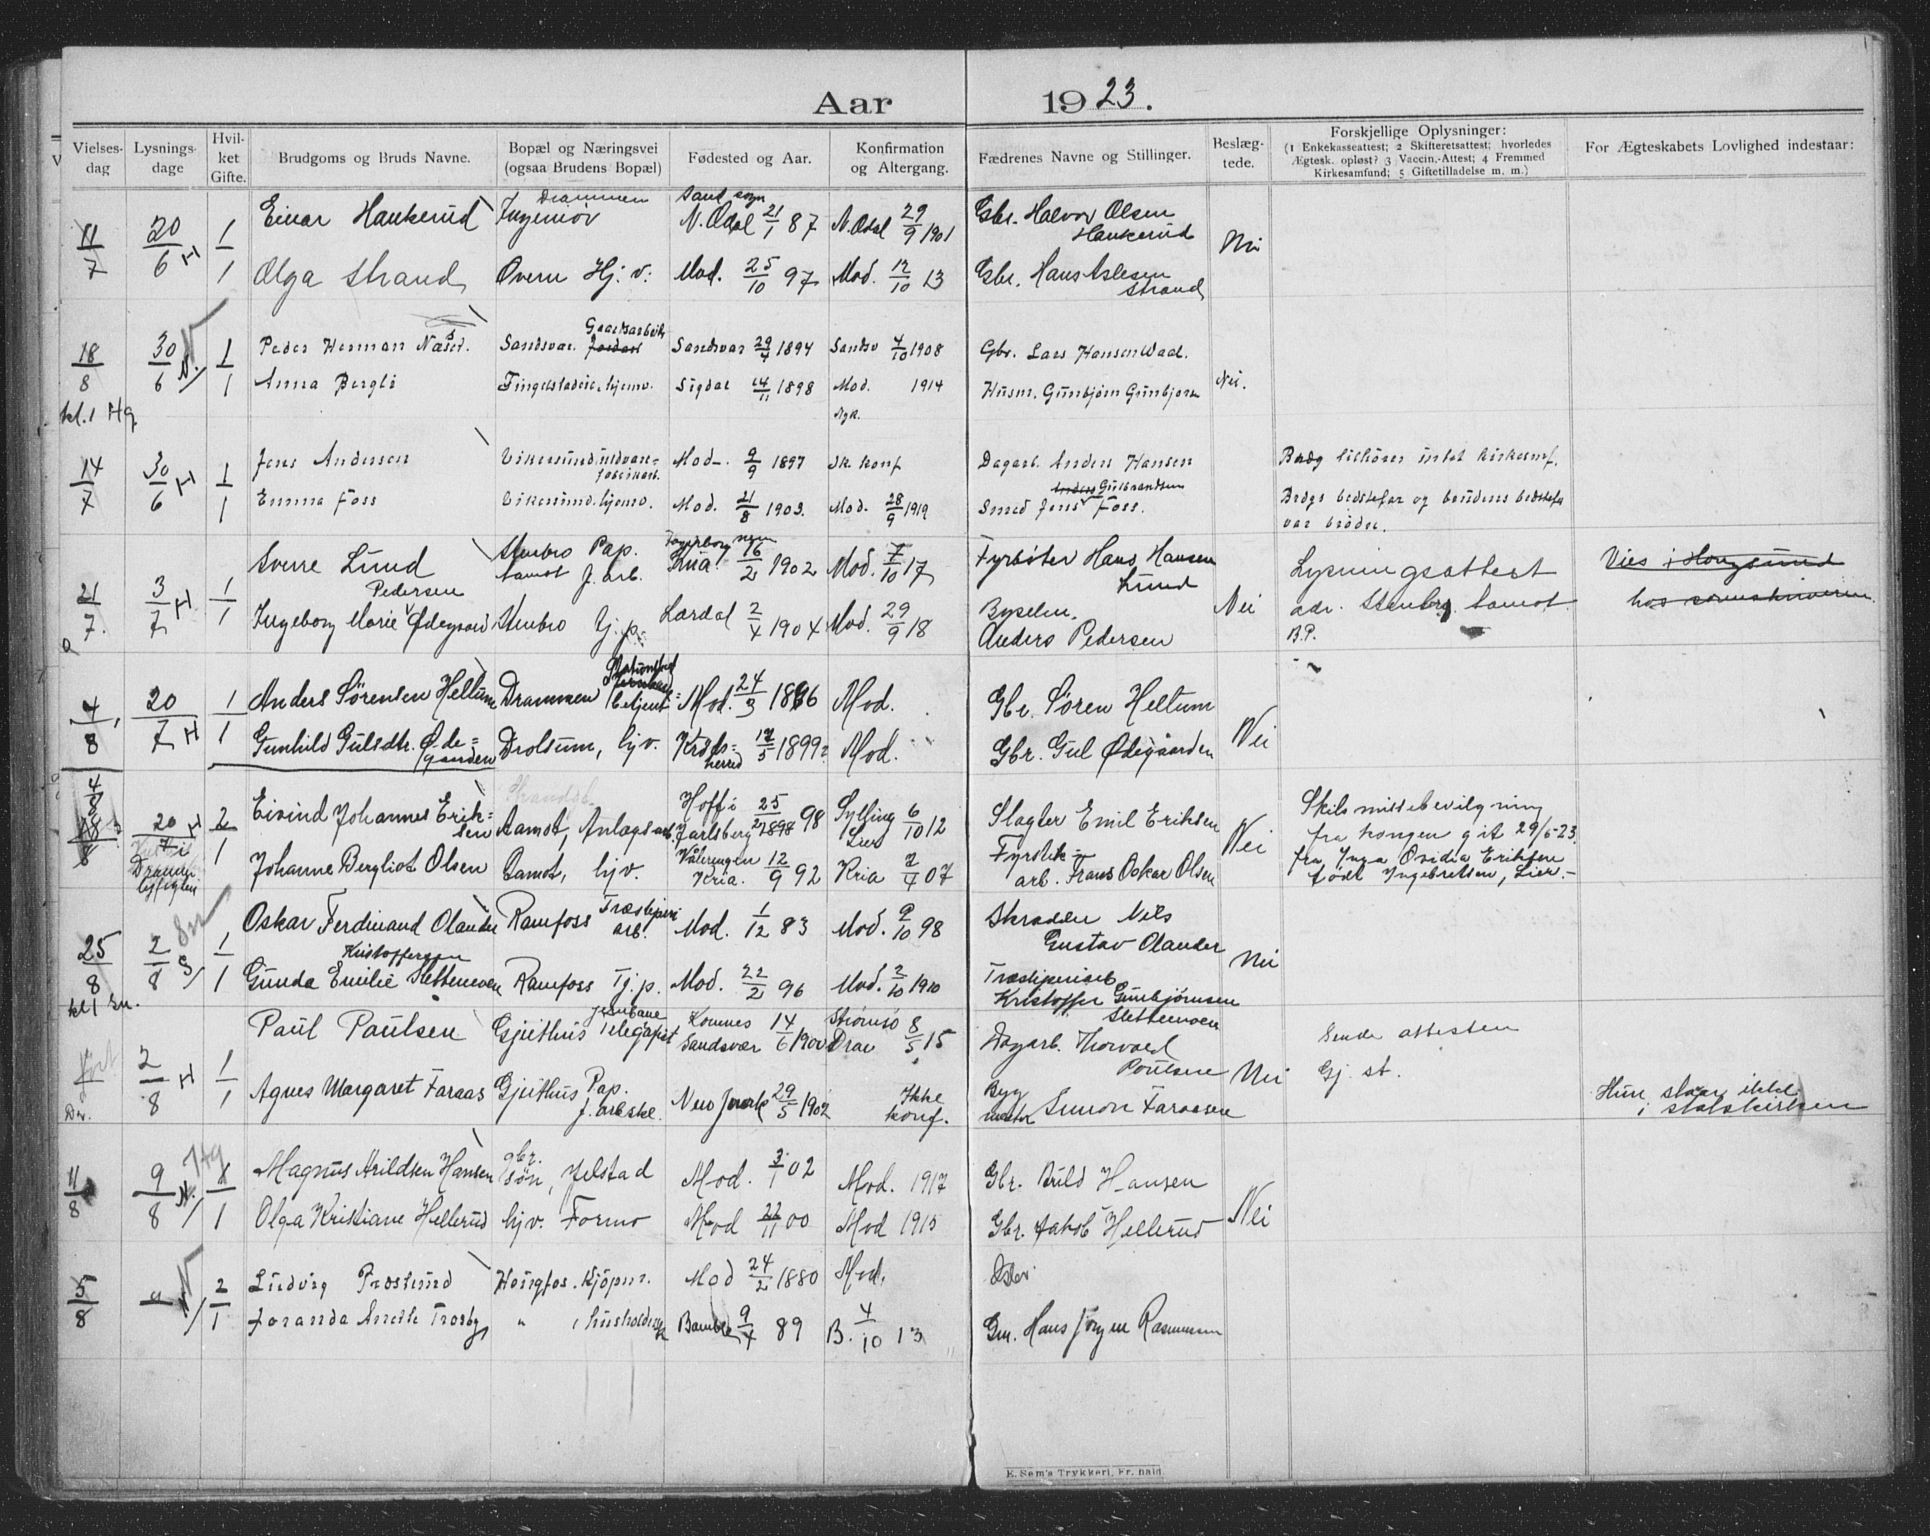 Aar 1923.
Vielses-dag
Lysnings-dage
Hvil-ket Gifte.
Brudgoms og Bruds Navne.
Bopæl og Næringsvei (ogsaa Brudens Bopæl)
Fødested og Aar.
Konfirmation og Altergang.
Fædrenes Navne og Stillinger.
Beslæg-tede.
Forskjellige Oplysninger:
(1 Enkekasseattest; 2 Skifteretsattest; hvorledes
Ægtesk. opløst? 3 Vaccin.-Attest; 4 Fremmed
Kirkesamfund; 5 Giftetilladelse m. m.)
For Ægteskabets Lovlighed indestaar:
11/7 20/6 H 1/1
Einar Haukerud Drammen Ingeniør Sand sogn N. Odal 21/1 87 N. Odal 29/9 1901 Gbr. Halvor Olsen Haukerud
Nei
Olga Strand Overn Hj. v. Mod. 25/10 97 Mod. 12/10 13 Gbr. Hans Aslesen Strand
18/8 30/6 N. 1/1
Peder Herman Sandsvær. Gaardsarbeik Sandsvær 29/4 1894 Sandsv 4/10 1908 Gbr. Lars Hansen Waad.
Anna Bergli Tingelstadeie, hjemv. Sigdal 14/11 1898 Mod. 1914 Husm. Gunbjørn Gunbjørsen
Nei.
kl. 1 Hg
14/7 30/6 H 1/1
Jens Andersen Vikersund, uldvare-fabrikarb. Mod. 9/9 1897 Ik. konf Dagarb. Anders Hansen Brdg tilhører intet kirkesmf.
Emma Foss Vikersund. hjemv. Mod. 21/8 1903. Mod. 28/9 1919 Smed Jens Gulbrandsen Foss. Brdgs bedstefar og brudens bedstefar
var brødre.
21/7. 3/7 H 1/1
Sverre Lund Stenbro Pap. Aamot f. arb. Fagerborg Kria 16/2 1902 Mod. 7/10 17 Fyrbøter Hans Hansen Lund Lysningsattest Vies i Hougsund
Pedersen
Ingeborg Marie Ødegaard Stenbro Tj. p. Lærdal 2/4 1904 Mod. 29/9 18 Byselm. Anders Pedersen Nei adr. Stenbro, Aamot. B.P. hos sorenskriveren
4/8 20/7 H 1/1
Anders Sørensen Hellum Drammen betjent Mod. 24/3 1896 Mod. Gbr. Søren Hellum
Gunhild Gulsdtr. Øde-gaarden Drolsum, hjv. Krøds-herred 12/5 1899 Mod. Gbr. Gul Ødegaarden
Nei
4/8 20/7 H 2/1
Eivind Johannes Erik-sen Aamot, Anlægsarb Hoff i Jarlsberg 25/2 98 Sylling Lier 6/10 12 Slagter Emil Eriksen Nei Skilsmissebevilgning
fra kongen git 29/6-23
fra Inga Ovidia Eriksen
født Ingebretsen, Lier.
Johanne Bergliot Olsen Aamot, hjv. Vålerengen Kria. 12/9 92 Kria 7/4 07 Fyrstik-arb. Frans Oskar Olsen
25/8 2/8 S 1/1
Oskar Ferdinand Olander Ramfoss Træsliperi arb. Mod. 1/12 83 Mod. 9/10 98 Skrædder Nils Gustav Olander
Kristoffersen
Gunda Emilie Slettemoen Ramfoss Tj. p. Mod. 22/2 96 Mod. 2/10 1910 Træsliperiarb Kristoffer Gunbjørnsen Slettemoen
Nei
kl 1 Sn.
2/8 H 1/1
Paul Paulsen Gjeithus jernbane Telegrafist Komnes Sandsvær 14/6 1900 Strømsø Dra 8/5 15 Dagarb. Thorvald Poulsen Sende attesten
Gj. st.
Agnes Margaret Faraas Gjeithus Pap. f. arbeske. New York 29/5 1902 Ikke konf. Byg mester Simon Faraasen Nei Hun staar ikke
i statskirken
11/8 9/8 N. 1/1 Hg
Magnus Arildsen Hansen gbr. søn, Jelstad Mod. 3/1 02 Mod. 1917 Gbr. Arild Hansen
Olga Kristiane Hellerud hjv. Formo Mod 22/11 00 Mod 1915 Gbr. Jakob Hellerud
Nei
5/8 " N 2/1
Ludvig Præsterud Hougfos. Kjøpm. Mod 24/2 1880 Mod.
Joranda Anette Trosby " husholderske Bamble 9/4 89 B. 4/10 13 Gm. Hans Jørgen Rasmussen
E. Sem's Trykkeri, Fr.hald